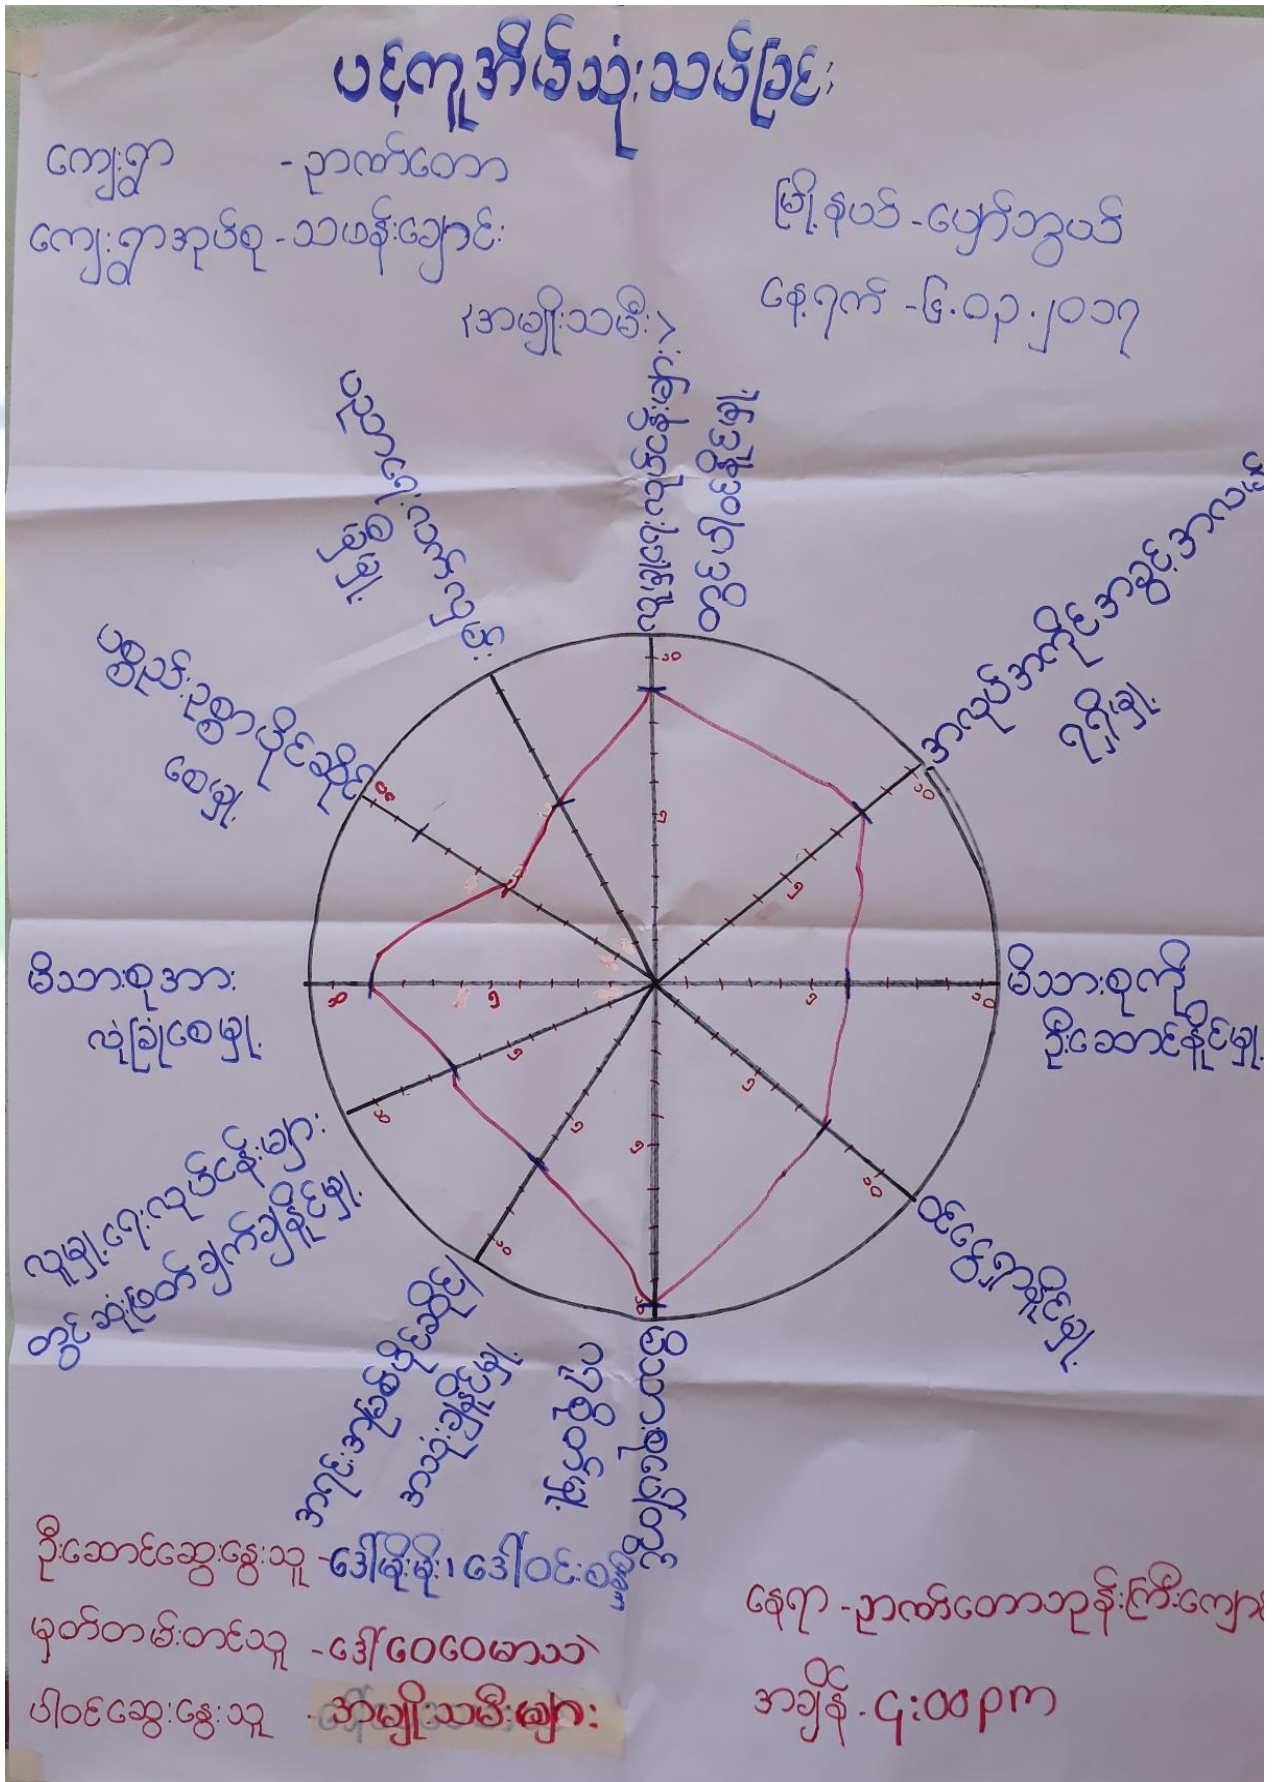 ပင့်ကူအိမ်သုံးသပ်ခြင်း
ကျေးရွာ - ဉာဏ်တော
ကျေးရွာအုပ်စု - သဖန်းချောင်း
မြို့နယ် - ပျော်ဘွယ်
နေ့ရက် - ၆.၀၃.၂၀၁၇
(အမျိုးသမီး)
လူမှုရေးလုပ်ငန်းများ
တွင်ပါဝင်နိုင်မှု
အလုပ်အကိုင်အခွင့်အလမ်း
ရရှိမှု
မိသားစုကို
ဦးဆောင်နိုင်မှု
ဝင်ငွေရှာနိုင်မှု
မိသားစုပေါ်တွင်
ဂရုစိုက်မှု
အရင်းအမြစ်ပိုင်ဆိုင်/
အသုံးချနိုင်မှု
လူမှုရေးလုပ်ငန်းများ
တွင်ဆုံးဖြတ်ချက်ချနိုင်မှု
မိသားစုအား
လုံခြုံစေမှု
ပစ္စည်းဥစ္စာပိုင်ဆိုင်
စေမှု
ပညာရေးလက်လှမ်း
မီစေမှု
၁၀
၅
၁၀
၅
၁၀
၅
၁၀
၅
၁၀
၅
၁၀
၅
၁၀
၅
၁၀
၅
၁၀
ဦးဆောင်ဆွေးနွေးသူ - ဒေါ်မိုးမိုး၊ ဒေါ်ဝင်း
မှတ်တမ်းတင်သူ - ဒေါ်ဝေဝေမာသဲ
ပါဝင်ဆွေးနွေးသူ - အမျိုးသမီးများ
နေရာ - ဉာဏ်တောဘုန်းကြီးကျောင်း
အချိန် - ၄:၀၀ pm